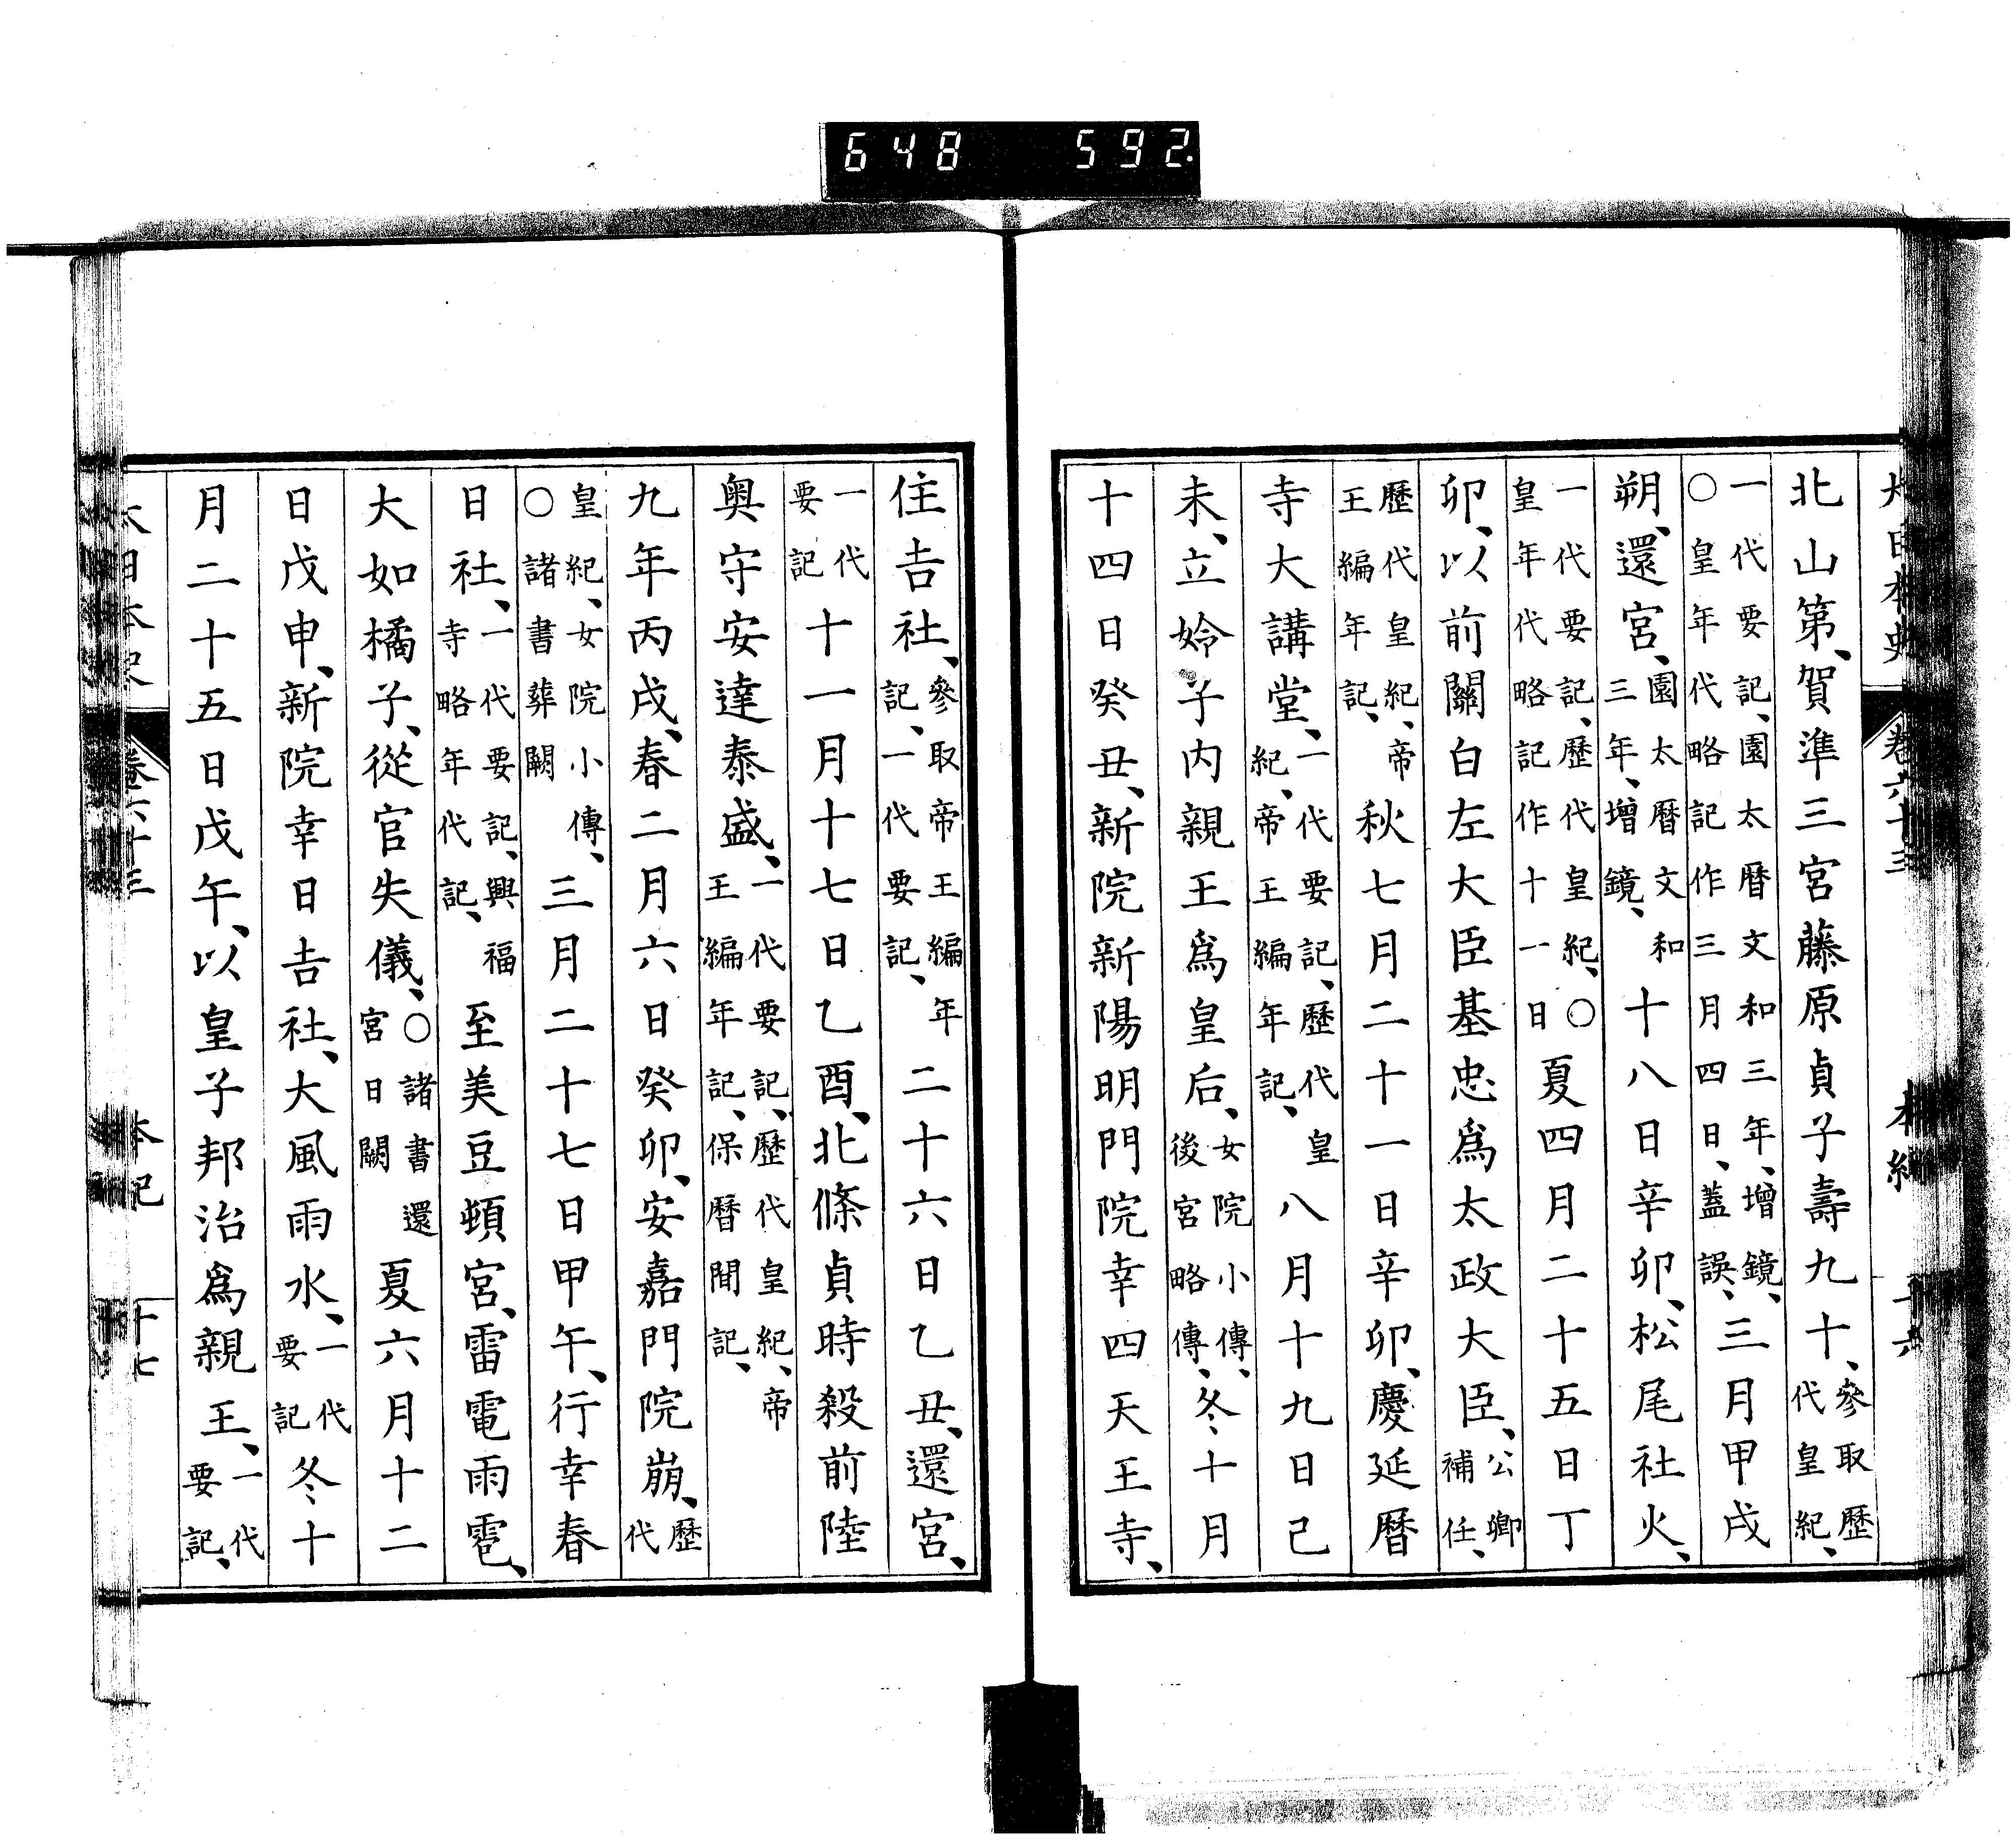 648 592.
大日本史 卷六十三 本紀 十六
北山第、賀準三宮藤原貞子壽九十、參取歷代皇紀、
一代要記、園太曆文和三年、增鏡、○皇年代略記作三月四日、蓋誤、三月甲戌
朔、還宮、園太曆文和三年、增鏡、十八日辛卯、松尾社火、
一代要記、歷代皇紀、○皇年代略記作十一日夏四月二十五日丁
卯、以前關白左大臣基忠爲太政大臣、公卿補任、
歷代皇紀、帝王編年記、秋七月二十一日辛卯、慶延曆
寺大講堂、一代要記、歷代皇紀、帝王編年記、八月十九日己
未、立姈子內親王爲皇后、女院小傳、後宮略傳、冬十月
十四日癸丑、新院新陽明門院幸四天王寺、
住吉社、參取帝王編年記、一代要記、二十六日乙丑、還宮、
一代要記十一月十七日乙酉、北條貞時殺前陸
奧守安達泰盛、一代要記、歷代皇紀、帝王編年記、保曆間記、
九年丙戌、春二月六日癸卯、安嘉門院崩、歷代
皇紀、女院小傳、○諸書葬闕三月二十七日甲午、行幸春
日社、一代要記、興福寺略年代記、至美豆頓宮、雷電雨雹、
大如橘子、從官失儀、○諸書還宮日闕夏六月十二
日戊申、新院幸日吉社、大風雨水、一代要記冬十
月二十五日戊午、以皇子邦治爲親王、一代要記、
大日本史 卷六十三 本紀 十七